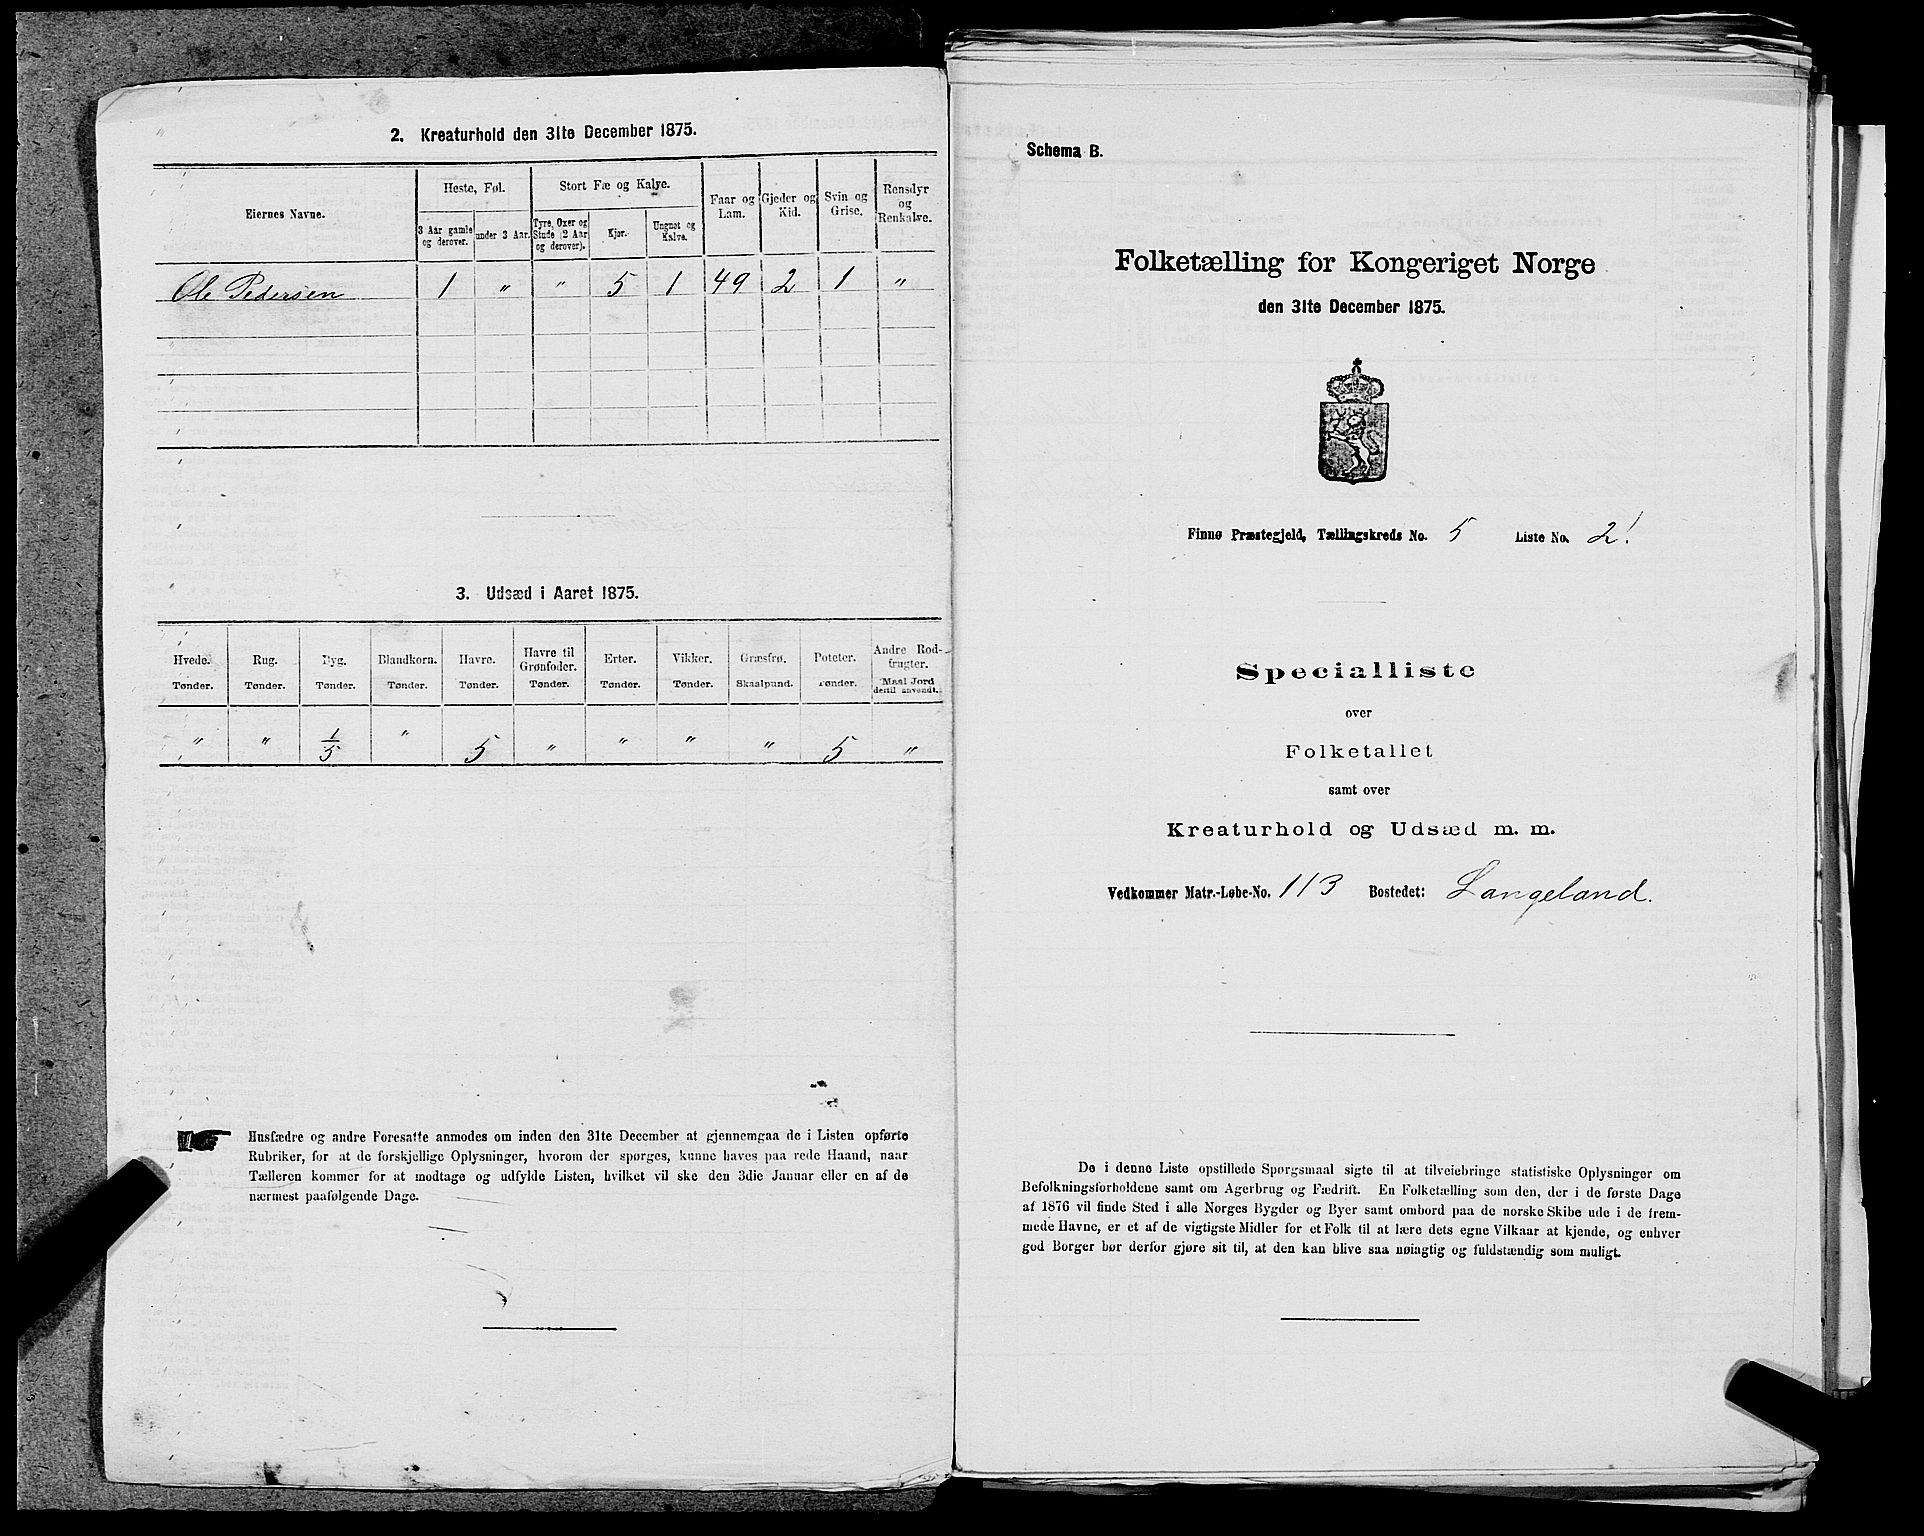 2. Kreaturhold den 31te December 1875.
Eiernes Navne.
Heste, Føl.
Stort Fæ og Kalve.
Faar og Lam.
Gjeder og Kid.
Svin og Grise.
Rensdyr og Renkalve.
3 Aar gamle og derover.
under 3 Aar.
Tyre, Oxer og Stude (2 Aar og derover).
Kjør.
Ungnøt og Kalve.
Ole Pedersen 1 " " 5 1 49 2 1 "
3. Udsæd i Aaret 1875.
Hvede. Rug. Byg. Blandkorn. Havre. Havre til Grønfoder. Erter. Vikker. Græsfrø. Poteter. Andre Rodfrugter.
Tønder. Tønder. Tønder. Tønder. Tønder. Tønder. Tønder. Tønder. Skaalpund. Tønder. Maal Jord dertil anvendt.
" " 1/5 " 5 " " " " 5 "
Husfædre og andre Foresatte anmodes om inden den 31te December at gjennemgaa de i Listen opførte
Rubriker, for at de forskjellige Oplysninger, hvorom der spørges, kunne haves paa rede Haand, naar
Tælleren kommer for at modtage og udfylde Listen, hvilket vil ske den 3die Januar eller en af de
nærmest paafølgende Dage.
Schema B.
Folketælling for Kongeriget Norge
den 31te December 1875.
Finnø Præstegjeld, Tællingskreds No. 5 Liste No. 2!
Specialliste
over
Folketallet
samt over
Kreaturhold og Udsæd m. m.
Vedkommer Matr.-Løbe-No. 113 Bostedet: Langeland.
De i denne Liste opstillede Spørgsmaal sigte til at tilveiebringe statistiske Oplysninger om
Befolkningsforholdene samt om Agerbrug og Fædrift. En Folketælling som den, der i de første Dage
af 1876 vil finde Sted i alle Norges Bygder og Byer samt ombord paa de norske Skibe ude i de frem-
mede Havne, er et af de vigtigste Midler for et Folk til at lære dets egne Vilkaar at kjende, og enhver
god Borger bør derfor gjøre sit til, at den kan blive saa nøiagtig og fuldstændig som muligt.